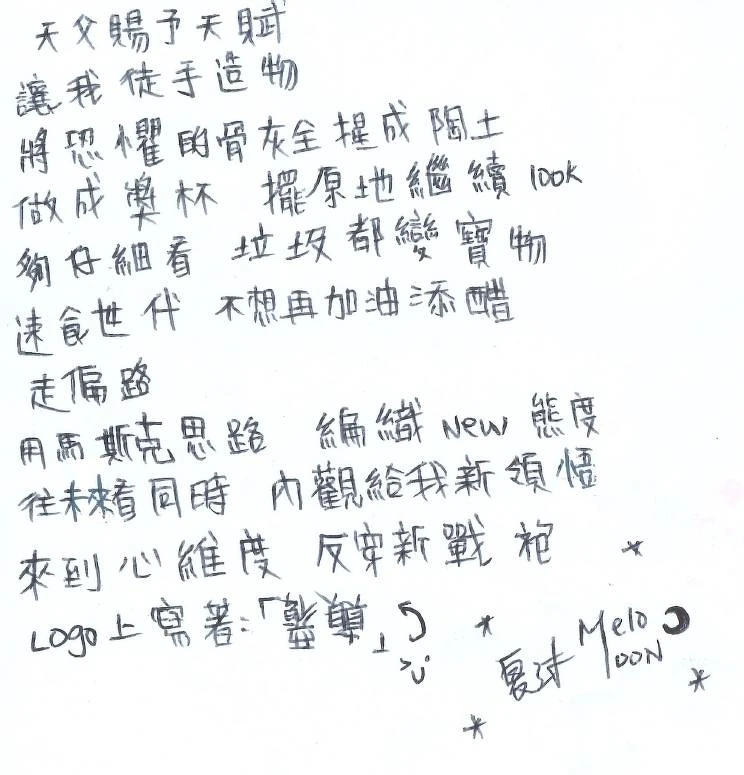 天父賜予天賦
讓我徒手造物
將恐懼的骨灰全捏成陶土
做成獎杯 擺原地繼續100K
夠仔細看 垃圾都變寶物
速食世代 不想再加油添醋
走偏路
用馬斯克思路 編織New態度
往未來看同時 內觀給我新領悟
來到心維度 反穿新戰袍
Logo上寫著:「」
Melo MooN